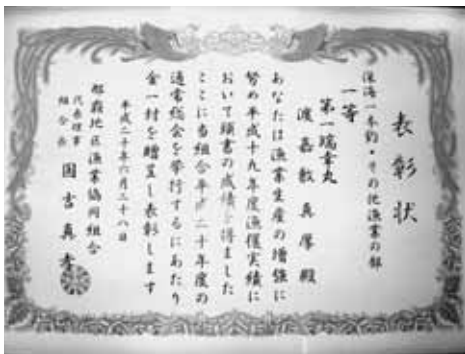 表彰状
深海一本釣・その他漁業の部
一等
第一瑞幸丸
渡嘉敷真厚殿
あなたは漁業生産の増強に
努め平成十九年度漁獲実績に
おいて頭書の成績を得ました
ここに当組合平成二十年度の
通常総会を挙行するにあたり
金一封を贈呈し表彰します
平成二十年六月二十八日
那覇地区漁業協同組合
代表理事
組合長
國吉真孝